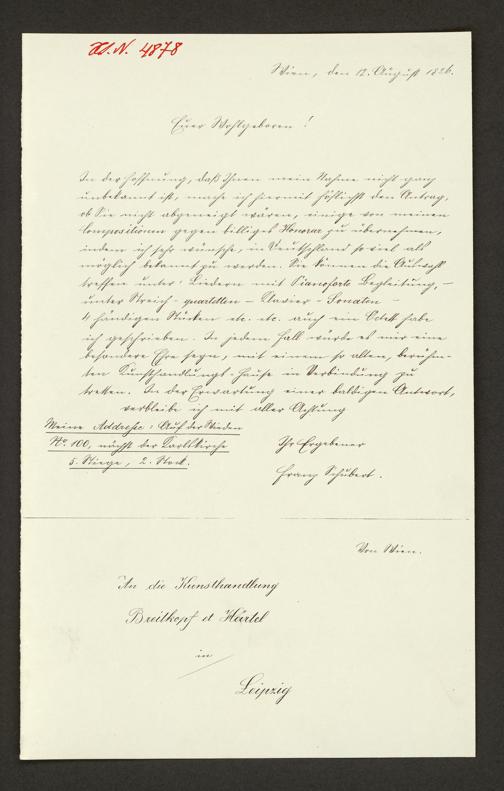 H.I.N. 4878
Wien, den 12. August 1826.
Euer Wohlgeboren!
In der Hoffnung, daß Ihnen mein Nahme nicht ganz
unbekannt ist, mache ich hiermit höflichst den Antrag,
ob Sie nicht abgeneigt wären, einige von meinen
Compositionen gegen billiges Honorar zu übernehmen,
indem ich sehr wünsche, in Deutschland so viel als
möglich bekannt zu werden. Sie können die Auswahl
treffen unter: Liedern mit Pianoforte Begleitung, –
unter Streich-quartetten – Clavier-Sonaten –
4 händigen Stücken etc. etc. auch ein Octett habe
ich geschrieben. In jedem Fall würde es mir eine
besondere Ehre seyn, mit einem so alten, berühm-
ten Kunsthandlungs-Hause in Verbindung zu
tretten. In der Erwartung einer baldigen Antwort,
verbleibe ich mit aller Achtung
Meine Addresse: Auf der Wieden
No. 100, nächst der Carlskirche
5. Stiege, 2. Stock.
Ihr Ergebener
Franz Schubert.
Von Wien.
An die Kunsthandlung
Breitkopf et Härtel
in
Leipzig